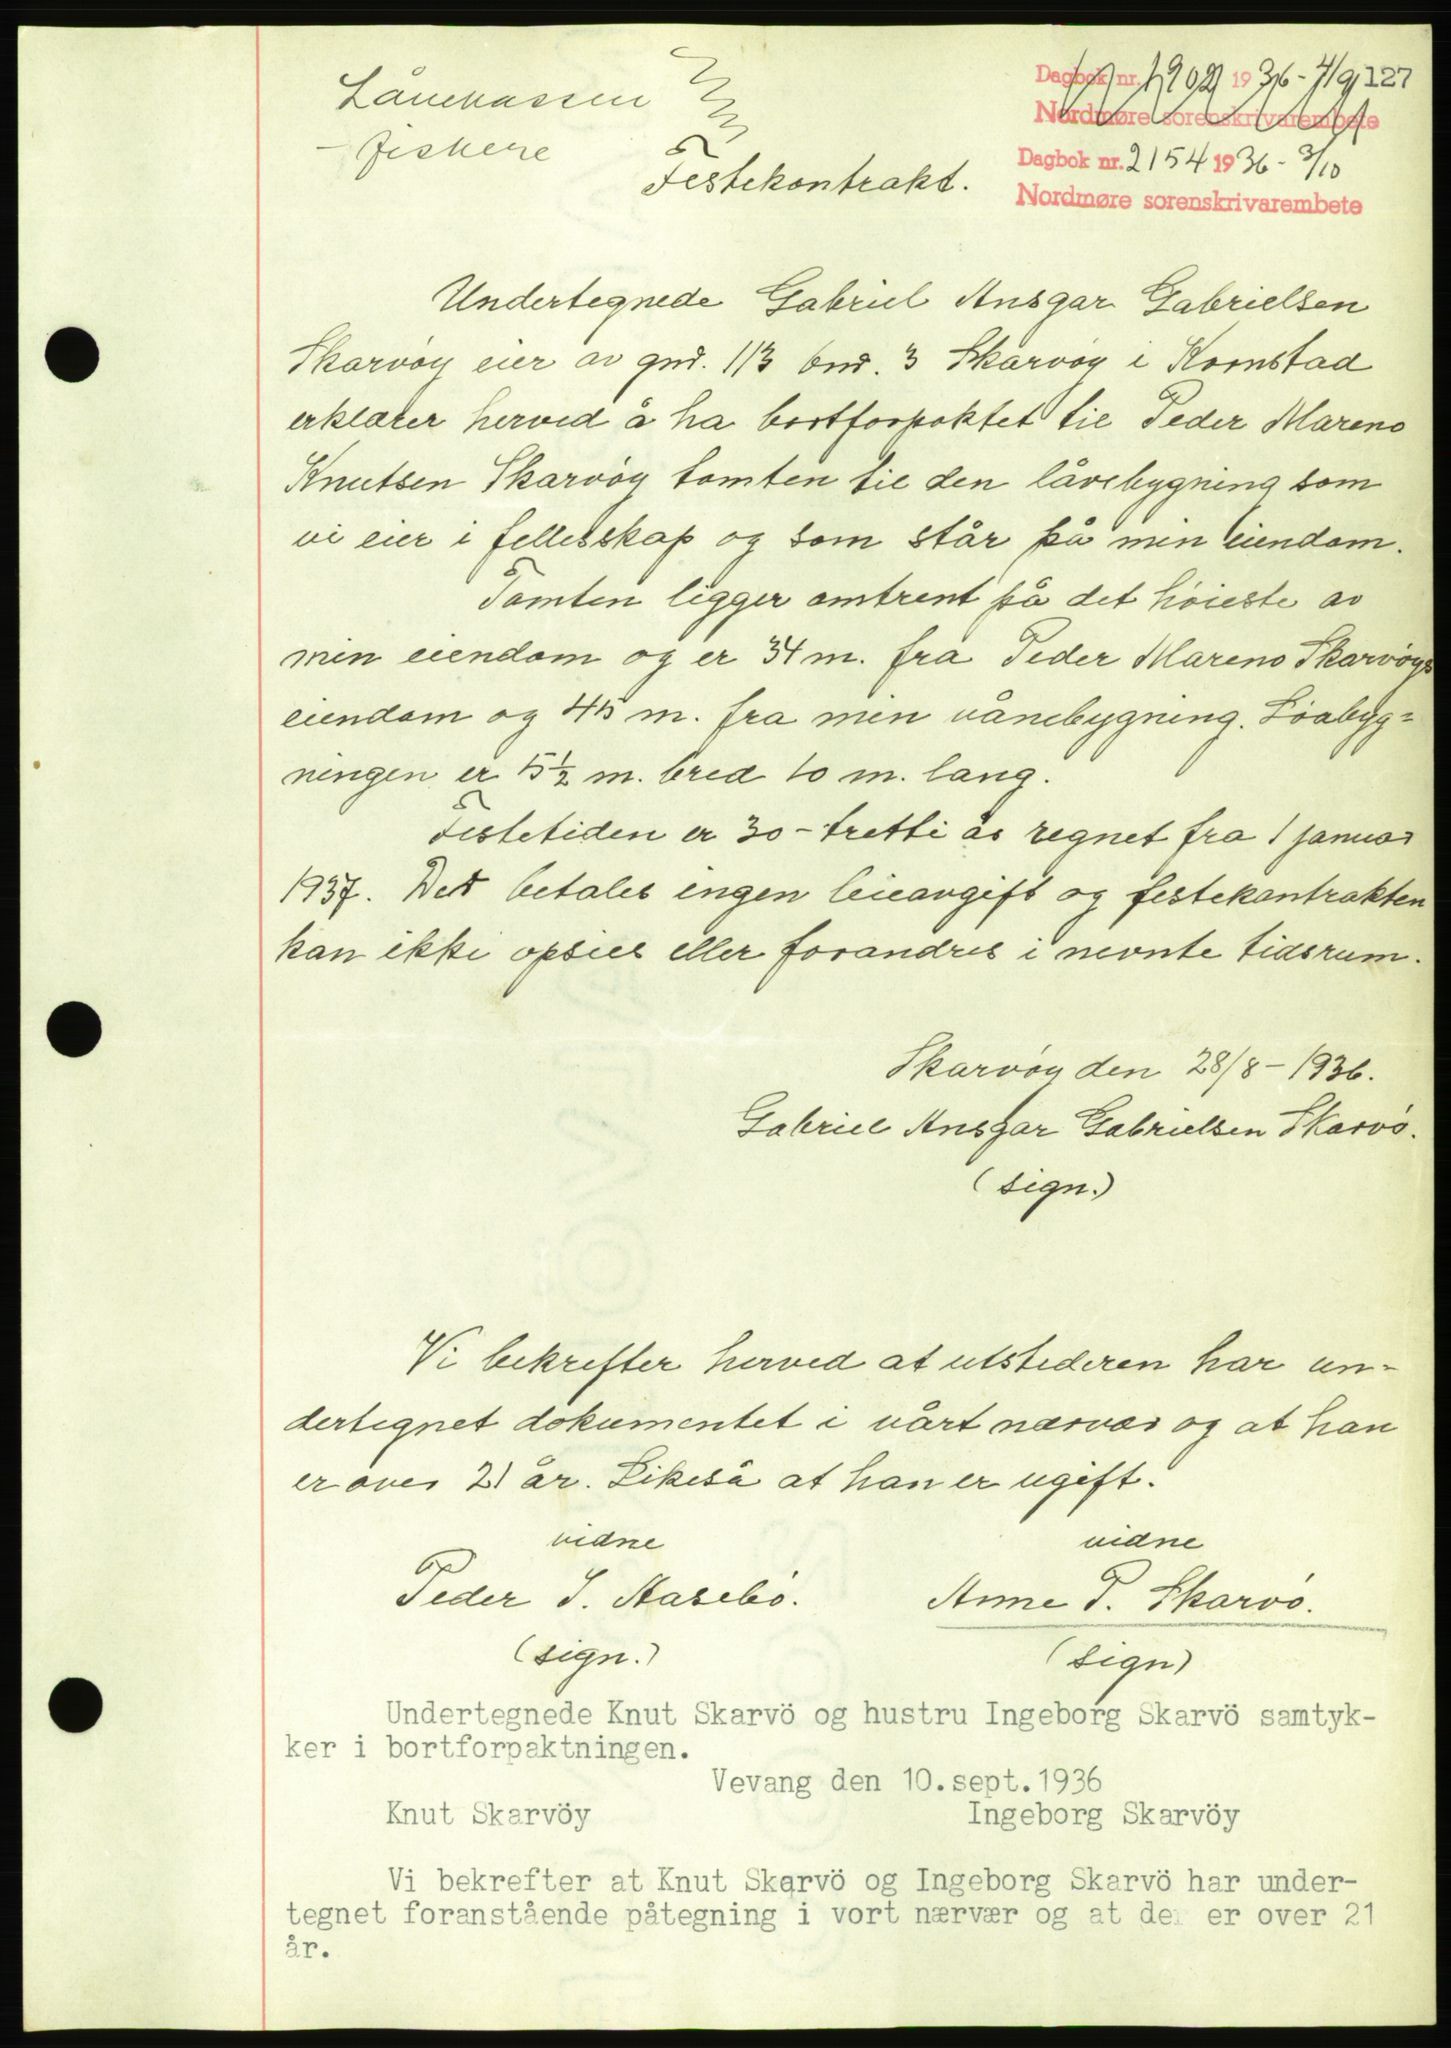 Lånekassen
- fiskere
Dagbok nr. 1902 1936 - 4/9 127
Nordmøre sorenskrivarembete
Dagbok nr. 2154 1936 - 3/10
Nordmøre sorenskrivarembete
Festekontrakt.
Undertegnede Gabriel Ansgar Gabrielsen
Skarvöy eier av gnr. 113 bnr. 3 Skarvöy i Kornstad
erklærer herved å ha bortforpaktet til Peder Mareno
Knutsen Skarvöy tomten til den låvebygning som
vi eier i fellesskap og som står på min eiendom.
Tomten ligger omtrent på det höieste av
min eiendom og er 34 m. fra Peder Mareno Skarvöys
eiendom og 45 m. fra min vånebygning. Löabyg=
ningen er 5½ m. bred 10 m. lang.
Festetiden er 30 - tretti år regnet fra 1 januar
1937. Det betales ingen leieavgift og festekontrakten
kan ikke opsies eller forandres i nevnte tidsrum.
Skarvöy den 28/8 - 1936.
Gabriel Ansgar Gabrielsen Skarvö.
(sign.)
Vi bekrefter herved at utstederen har un-
dertegnet dokumentet i vårt nærvær og at han
er over 21 år. Likeså at han er ugift.
vidne vidne
Peder J. Aasebö. Anne P. Skarvö.
(sign.) (sign)
Undertegnede Knut Skarvö og hustru Ingeborg Skarvö samtyk-
ker i bortforpaktningen.
Vevang den 10.sept.1936
Knut Skarvöy Ingeborg Skarvöy
Vi bekrefter at Knut Skarvö og Ingeborg Skarvö har under-
tegnet foranstående påtegning i vort nærvær og at de er over 21
år.